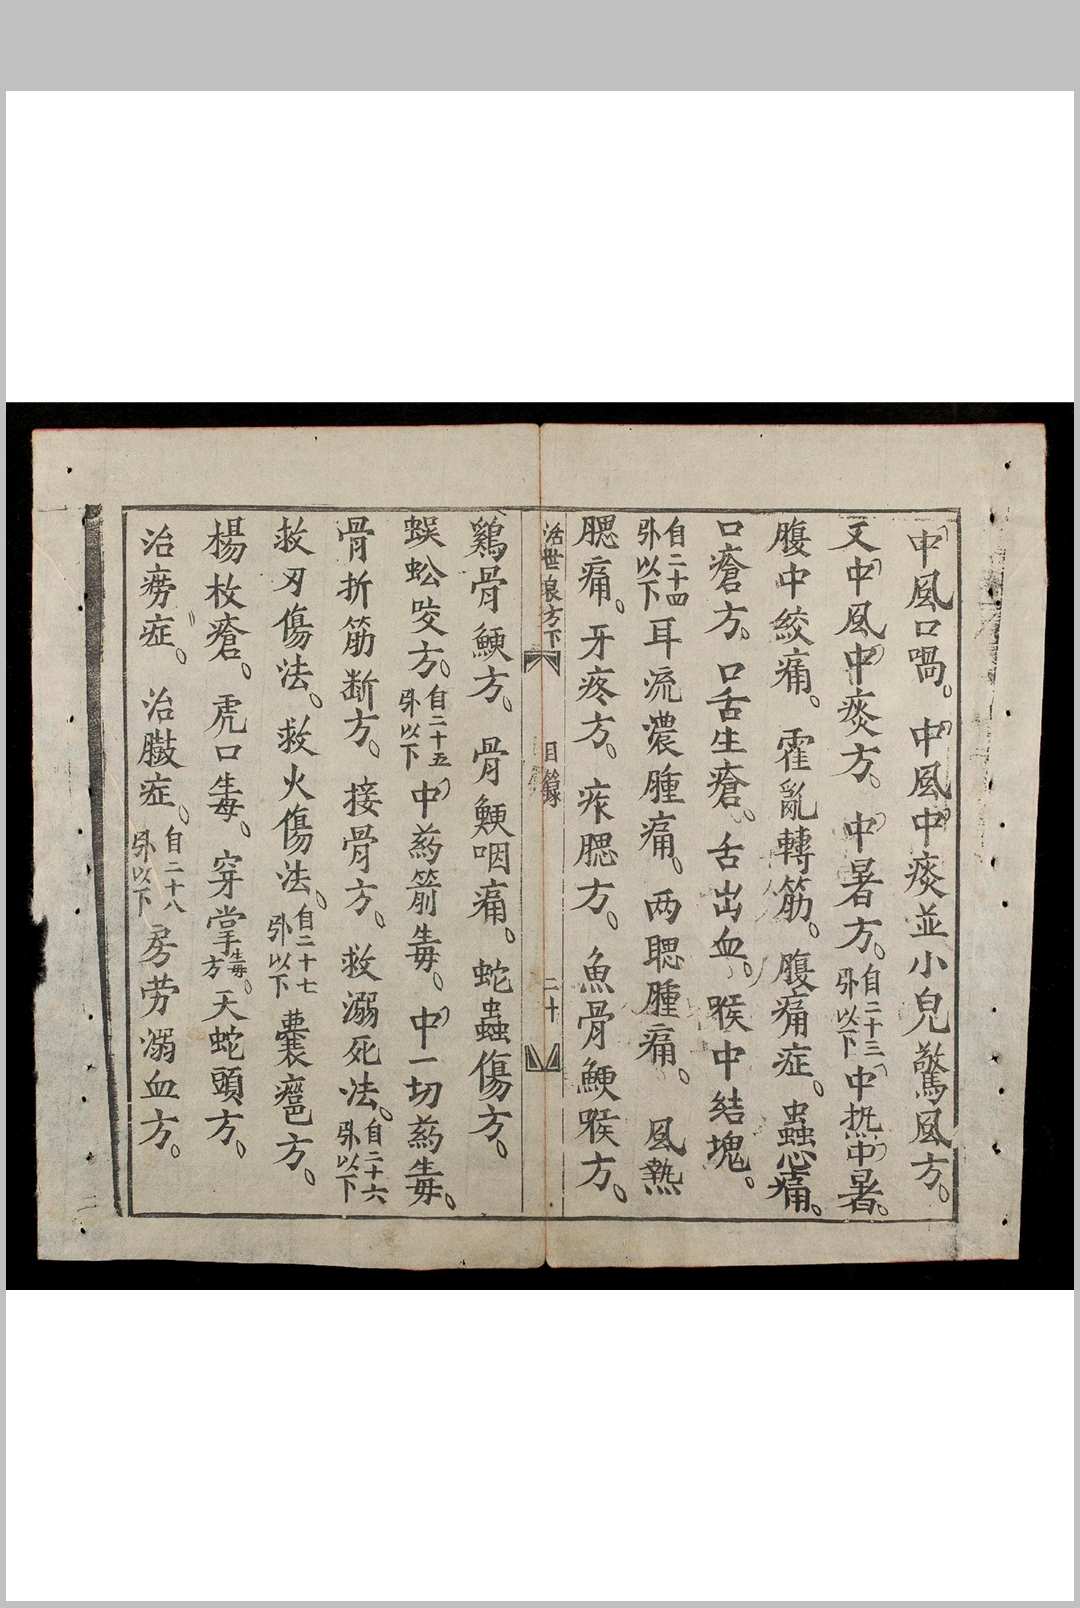 中風口喎。中風中痰並小兒驚風方。
又中風中痰方。中暑方。自二十三卧以下中熱中暑。
腹中絞痛。霍亂轉筋。腹痛症。蟲心痛。
口瘡方。口舌生瘡。舌出血。喉中結塊。
自二十四卧以下耳流濃腫痛。两聦腫痛。風熱
腮痛。牙疼方。痄腮方。魚骨鯁喉方。
活世良方下 目録 二十
鷄骨鯁方。骨鯁咽痛。蛇蟲傷方。
蜈蚣咬方。自二十五卧以下中葯箭毒。中一切葯毒。
骨折筋断方。接骨方。救溺死法。自二十六卧以下
救刃傷法。救火傷法。自二十七卧以下囊癰方。
楊枚瘡。虎口毒。穿掌毒方。天蛇頭方。
治癆症。治臌症。自二十八卧以下房劳溺血方。